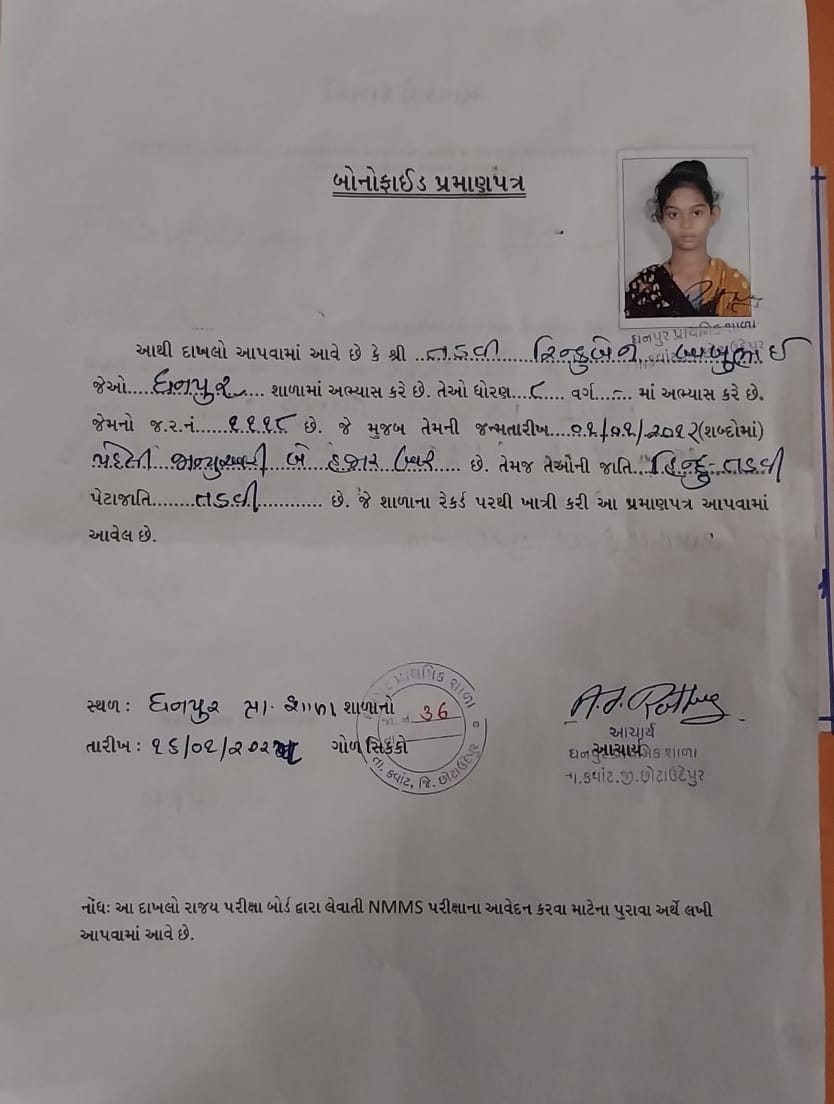 બોનોફાઈડ પ્રમાણપત્ર
ધનપુર પ્રાથમિક શાળા
આથી દાખલો આપવામાં આવે છે કે શ્રી ..તડવી રિન્કુબેન
જેઓ....ધનપુર.... શાળામાં અભ્યાસ કરે છે. તેઓ ધોરણ...૮.... વર્ગ....-... માં અભ્યાસ કરે છે.
જેમનો જ.ર.નં......૧૧૧૮ છે. જે મુજબ તેમની જન્મતારીખ...૦૧/૦૧/૨૦૧૨(શબ્દોમાં)
પહેલી જાન્યુઆરી બે હજાર બાર.... છે. તેમજ તેઓની જાતિ...હિન્દુ-તડવી
પેટાજાતિ........તડવી............ છે. જે શાળાના રેકર્ડ પરથી ખાત્રી કરી આ પ્રમાણપત્ર આપવામાં
આવેલ છે.
સ્થળ: ધનપુર પ્રા. શાળા શાળાનો
તારીખ: ૧૬/૦૧/૨૦૨ ગોળ સિક્કો
પ્રાથમિક શાળા
જા. નં. 36
તા. કવાંટ, જિ. છોટાઉદેપુર
આચાર્ય
આચાર્ય
ધનપુર પ્રાથમિક શાળા
તા.કવાંટ.જી.છોટાઉદેપુર
નોંધ: આ દાખલો રાજય પરીક્ષા બોર્ડ દ્વારા લેવાતી NMMS પરીક્ષાના આવેદન કરવા માટેના પુરાવા અર્થે લખી
આપવામાં આવે છે.